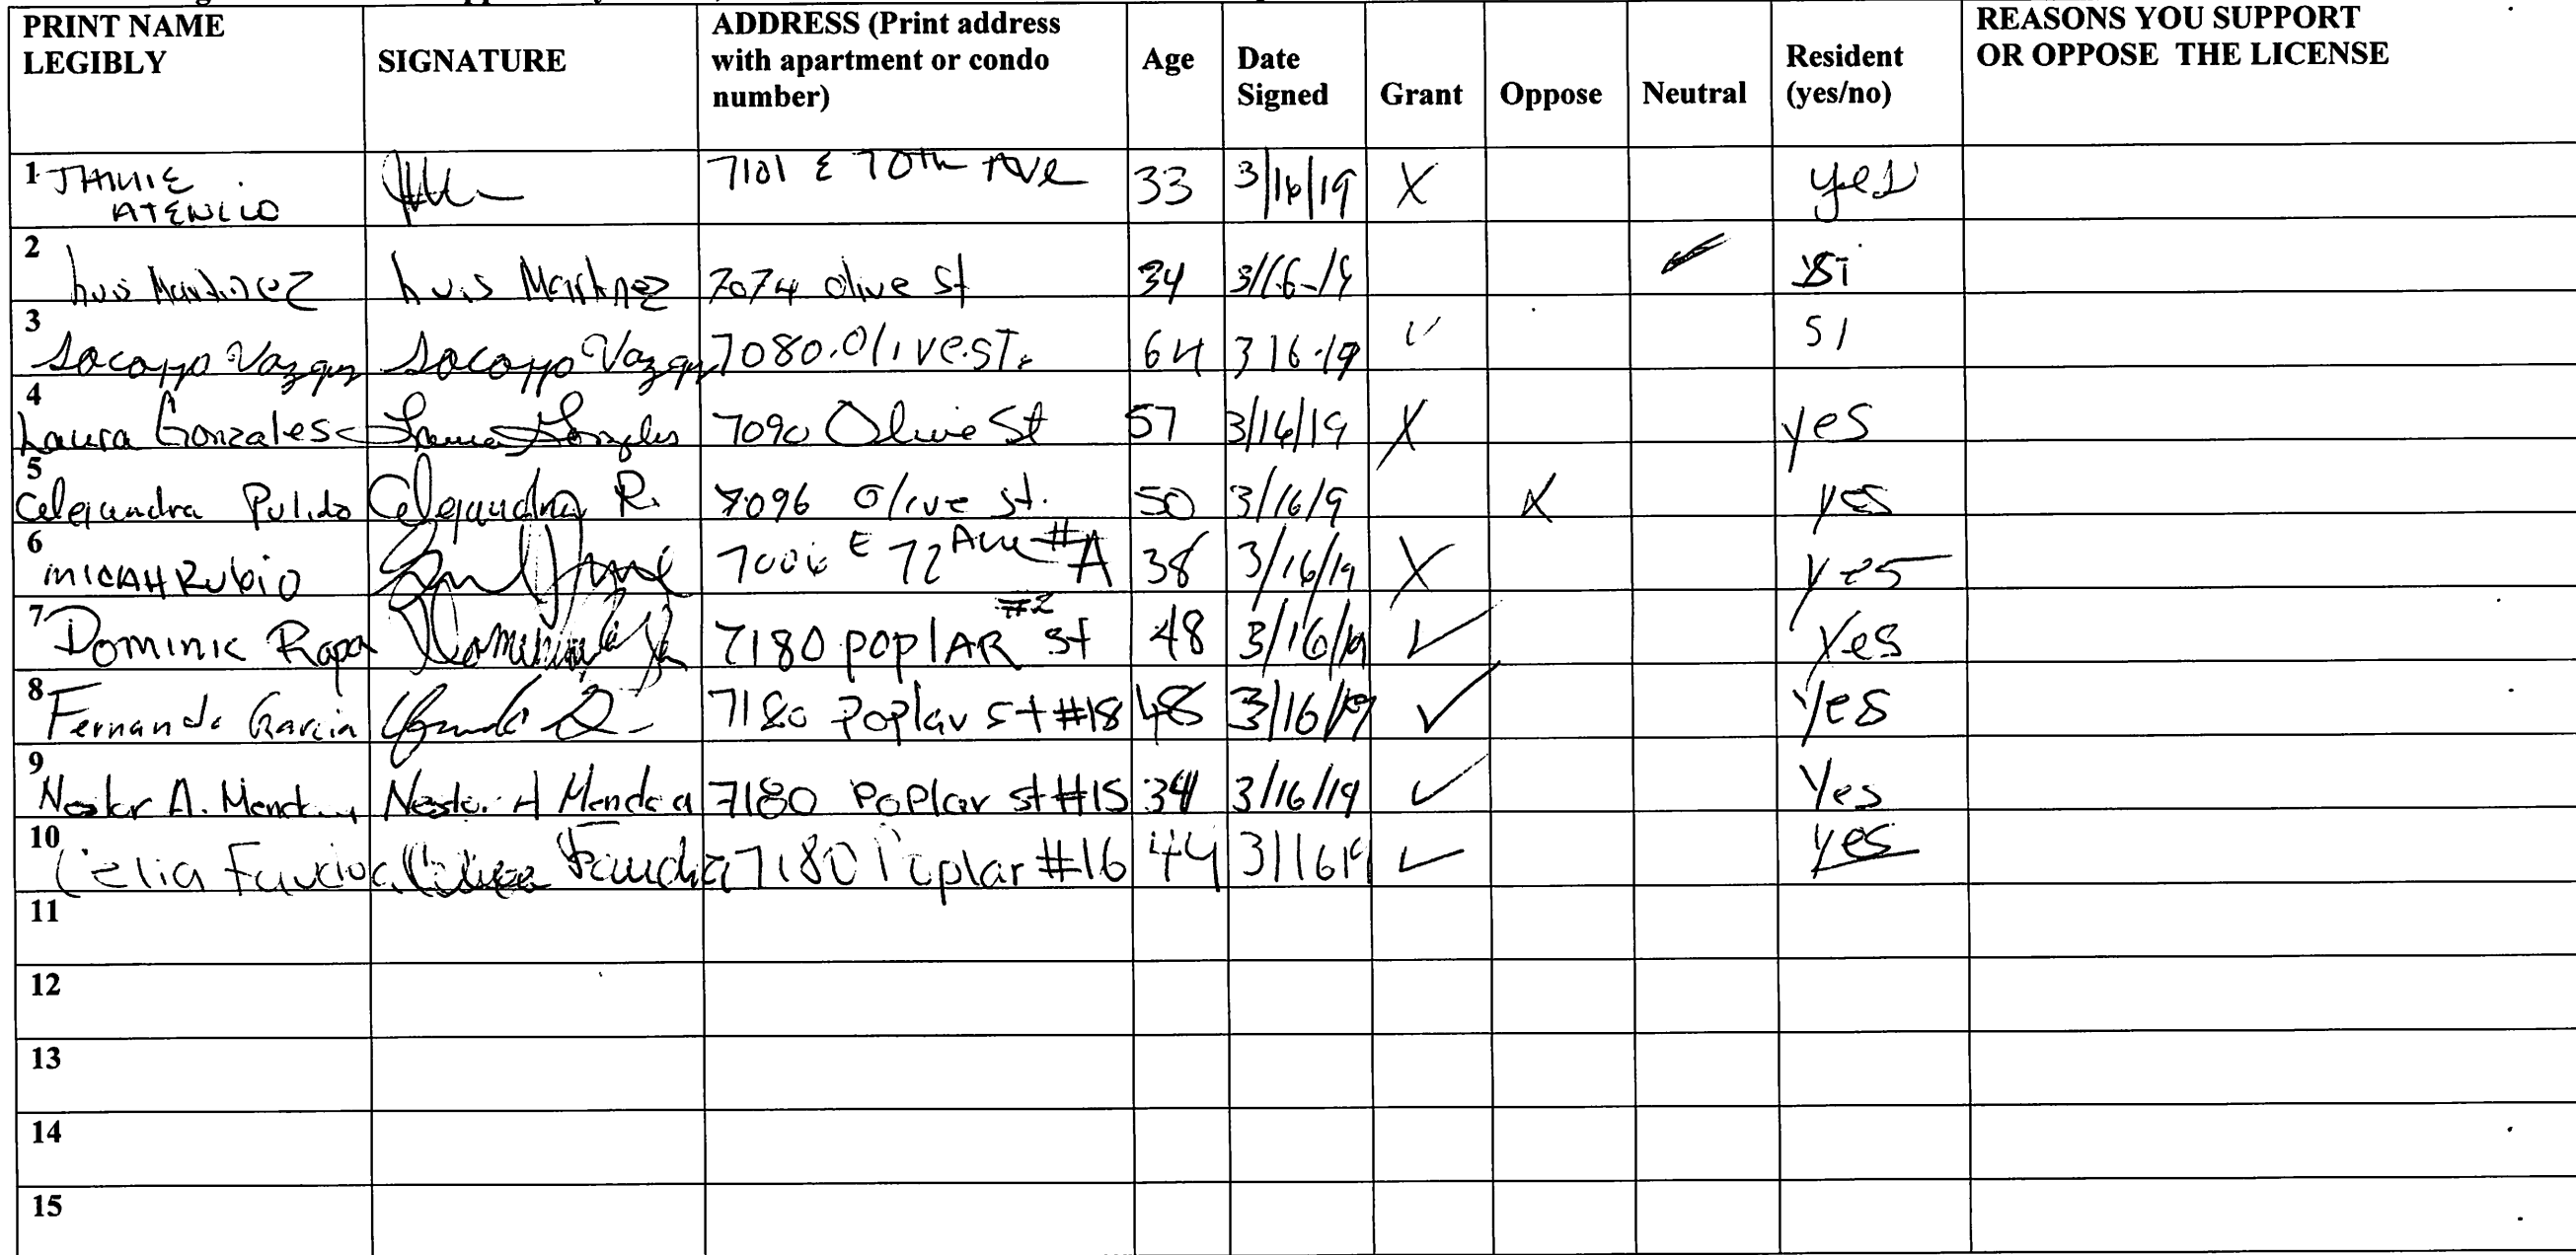 PRINT NAME LEGIBLY SIGNATURE ADDRESS (Print address with apartment or condo number) Age Date Signed Grant Oppose Neutral Resident (yes/no) REASONS YOU SUPPORT OR OPPOSE THE LICENSE
1 JAMIE ATENCIO 7101 E 70th AVE 33 3/16/19 X yes
2 Luis Martinez Luis Martinez 7074 olive st 34 3/16-19 ✓ Si
3 Socorro Vazqz Socorro Vazqz 7080.Olive.ST. 64 3 16-19 ✓ SI
4 Laura Gonzales Laura Gonzales 7090 Olive St 57 3/16/19 X yes
5 Alejandra Pulido Alejandra R. 7096 Olive st. 50 3/16/9 X yes
6 MICAH RubiO 7006 E 72 Ave #A 38 3/16/19 X yes
7 Dominic Rapa 7180 poplAR st #2 48 3/16/19 ✓ Yes
8 Fernando Garcia 7180 Poplar st #18 48 3/16/19 ✓ Yes
9 Nestor A. Nestor A 7180 Poplar st #15 34 3/16/19 ✓ Yes
10 Celia 7180 Poplar #16 44 31619 ✓ yes
11
12
13
14
15